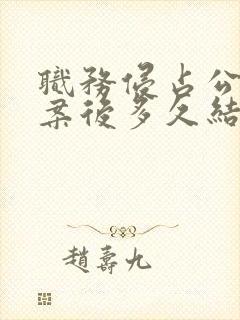 職務侵占公
案後多久結
趙壽九